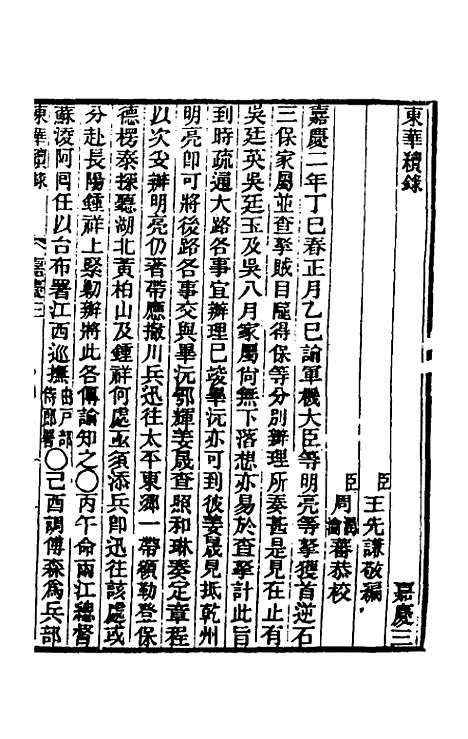 東華續錄
嘉慶三
臣王先謙敬編
臣周潤蕃周瀹蕃恭校
嘉慶二年丁巳春正月乙巳諭軍機大臣等明亮等拏獲首逆石
三保家屬並查拏賊目龐得保等分別辦理所奏甚是見在止有
吳廷英吳廷玉及吳八月家屬尙無下落想亦易於查拏計此旨
到時疏通大路各事宜辦理已竣畢沅亦可到彼姜晟見抵乾州
明亮即可將後路各事交與畢沅鄂輝姜晟查照和琳奏定章程
以次妥辦明亮仍著帶應撤川兵迅往太平東鄉一帶領勒登保
德楞泰探聽湖北黃柏山及鍾祥何處亟須添兵即迅往該處或
分赴長陽鍾祥上緊勦辦將此各傳諭知之〇丙午命兩江總督
蘇淩阿回任以台布署江西巡撫由戶部侍郎署〇己酉調傅森爲兵部
東華續錄 嘉慶三